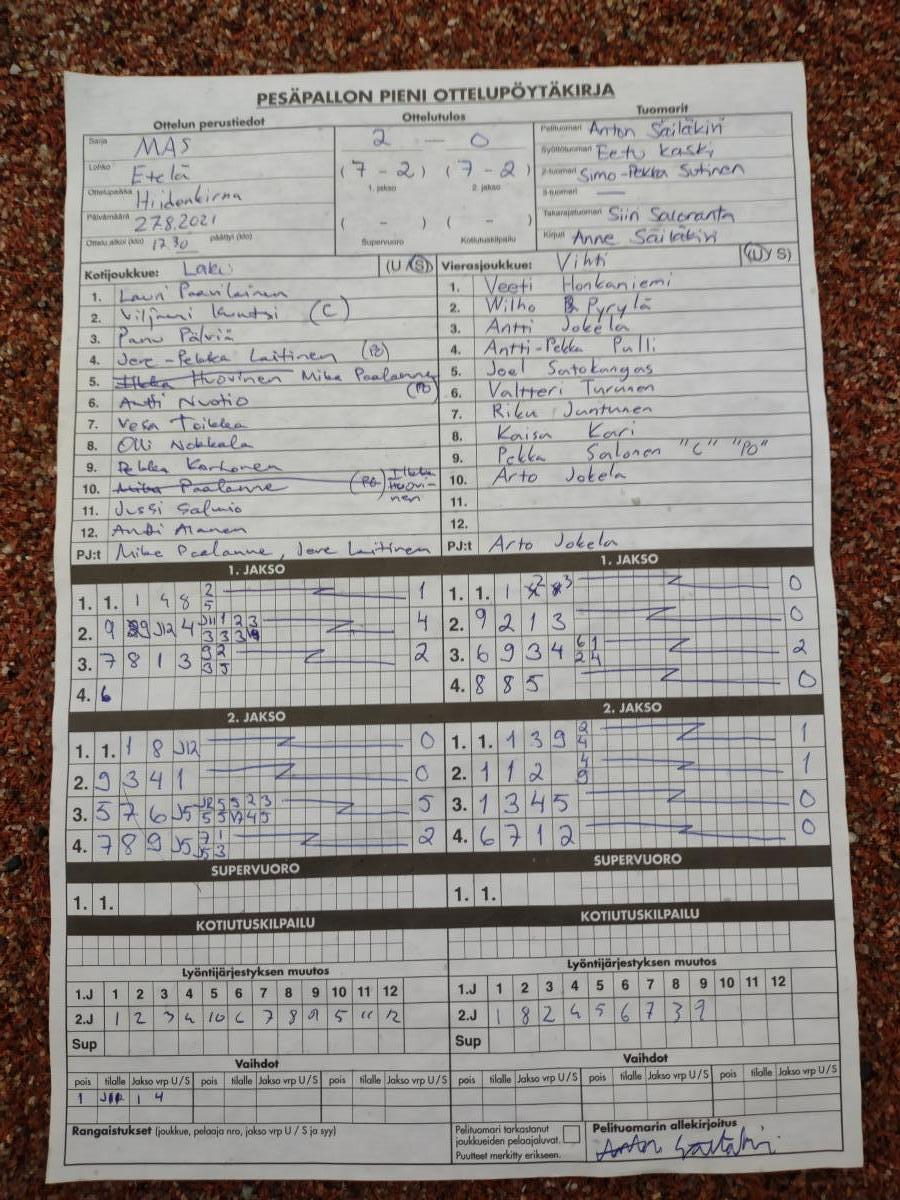 PESÄPALLON PIENI OTTELUPÖYTÄKIRJA
Ottelun perustiedot
Sarja MAS
Lohko Etelä
Ottelupaikka Hiidenkirnu
Päivämäärä 27.8.2021
Ottelu alkoi (klo) 17.30 päättyi (klo)
Ottelutulos
2 — 0
(7 - 2) (7 - 2)
1. jakso 2. jakso
( - ) ( - )
Supervuoro Kotiutuskilpailu
Tuomarit
Pelituomari Anton Säiläkivi
Syöttötuomari Eetu Kaski
2-tuomari Simo-Pekka Sutinen
3-tuomari —
Takarajatuomari Siin Saloranta
Kirjuri Anne Säiläkivi
Kotijoukkue: (U / S)
1. Lauri Paavilainen
2. Viljami (C)
3. Panu
4. Jere-Pekka Laitinen
5. Ilkka Huovinen Mika Paalanne
6. Antti Nuotio
7. Vesa Toikka
8. Olli Nokkala
9. Pekka Korhonen
10. Mika Paalanne Ilkka Huovi-
nen
11. Jussi Salmio
12. Antti Alanen
PJ:t Mika Paalanne, Jere Laitinen
Vierasjoukkue: Vihti (U / S)
1. Veeti Honkaniemi
2. Wilho Pyrylä
3. Antti Jokela
4. Antti-Pekka Pulli
5. Joel Satokangas
6. Valtteri Turunen
7. Riku Juntunen
8. Kaisa Kari
9. Pekka Salonen "C" "PO"
10. Arto Jokela
11.
12.
PJ:t Arto Jokela
1. JAKSO
1. 1. 1 4 8 2 5 1
2. 9 J12 4 4
3. 7 8 1 3 9 2 3 5 2
4. 6
1. JAKSO
1. 1. 1 0
2. 9 2 1 3 0
3. 6 9 3 4 6 1 2 4 2
4. 8 8 5 0
2. JAKSO
1. 1. 1 8 J12 0
2. 9 3 4 1 0
3. 5 7 6 J5 5
4. 7 8 9 J5 7 1 J5 3 2
2. JAKSO
1. 1. 1 3 9 2 4 1
2. 1 1 2 4 9 1
3. 1 3 4 5 0
4. 6 7 1 2 0
SUPERVUORO
1. 1.
SUPERVUORO
1. 1.
KOTIUTUSKILPAILU
KOTIUTUSKILPAILU
Lyöntijärjestyksen muutos
1.J 1 2 3 4 5 6 7 8 9 10 11 12
2.J 1 2 3 4 10 6 7 8 9 5 11 12
Sup
Lyöntijärjestyksen muutos
1.J 1 2 3 4 5 6 7 8 9 10 11 12
2.J 1 8 2 4 5 6 7 3 9
Sup
Vaihdot
pois tilalle Jakso vrp U/S pois tilalle Jakso vrp U/S pois tilalle Jakso vrp U/S
1 1 4
Vaihdot
pois tilalle Jakso vrp U/S pois tilalle Jakso vrp U/S pois tilalle Jakso vrp U/S
Rangaistukset (joukkue, pelaaja nro, jakso vrp U / S ja syy)
Pelituomari tarkastanut
joukkueiden pelaajaluvat.
Puutteet merkitty erikseen.
Pelituomarin allekirjoitus